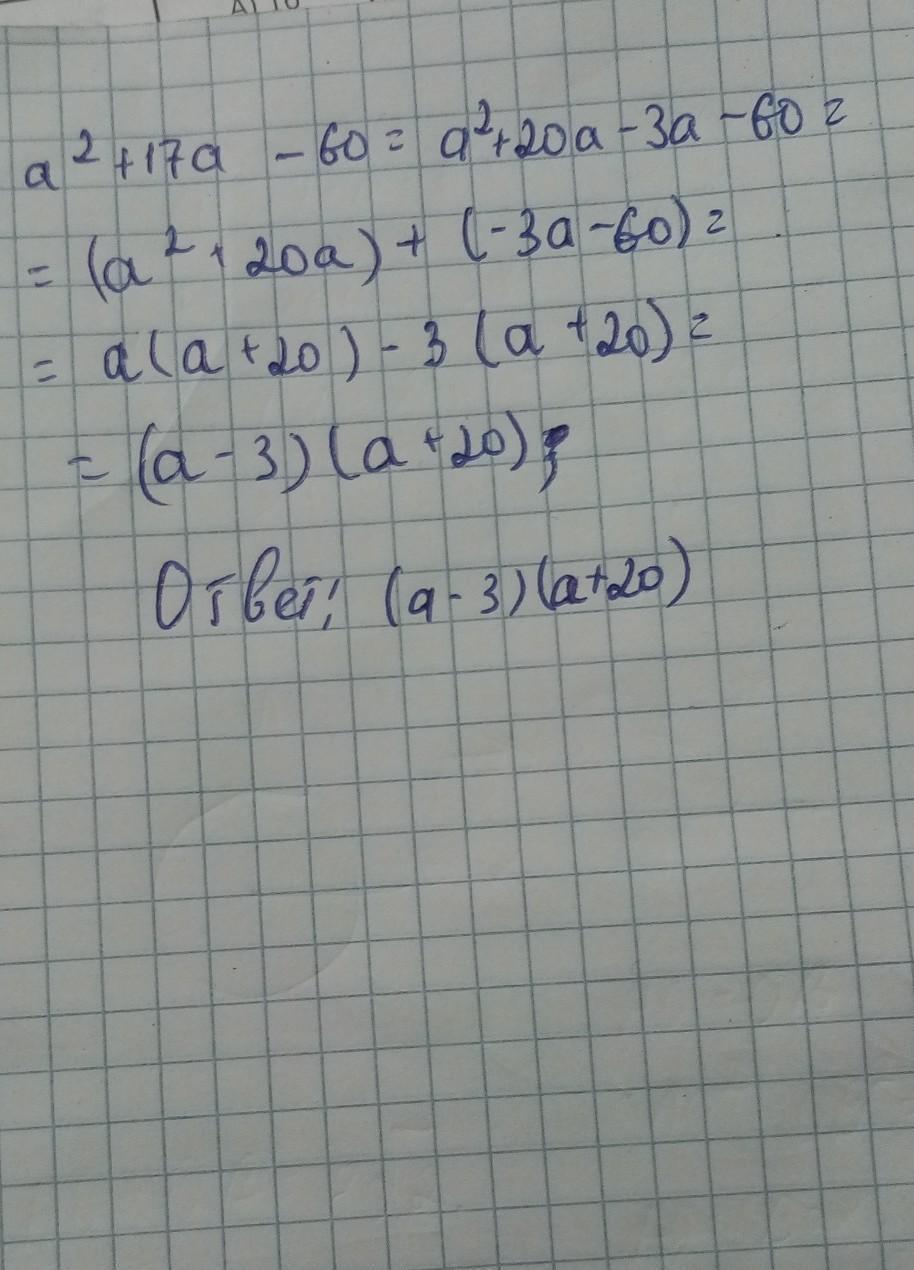 a² + 17a - 60 = a² + 20a - 3a - 60 =
= (a² + 20a) + (-3a - 60) =
= a(a + 20) - 3(a + 20) =
= (a - 3)(a + 20);
Ответ: (a - 3)(a + 20)